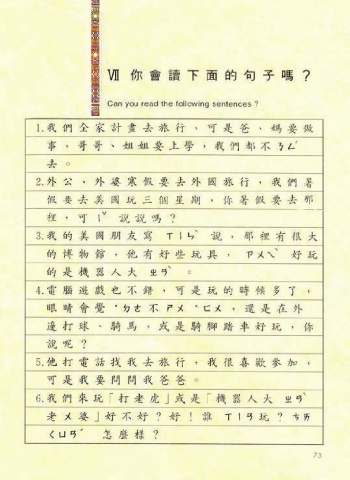 Ⅶ 你會讀下面的句子嗎？
Can you read the following sentences ?
1.我們全家計畫去旅行，可是爸、媽要做
事，哥哥、姐姐要上學，我們都不ㄋㄥˊ
去。
2.外公、外婆寒假要去外國旅行，我們暑
假要去美國玩三個星期，你暑假要去那
裡，可ㄧˇ說說嗎？
3.我的美國朋友寫ㄒㄧㄣˋ說，那裡有很大
的博物館，他有好些玩具，ㄗㄨㄟˋ好玩
的是機器人大ㄓㄢˋ。
4.電腦遊戲也不錯，可是玩的時候多了，
眼睛會覺˙ㄉㄜ不ㄕㄨ ˙ㄈㄨ，還是在外
邊打球、騎馬，或是騎腳踏車好玩，你
說呢？
5.他打電話找我去旅行，我很喜歡參加，
可是我要問問我爸爸。
6.我們來玩「打老虎」或是「機器人大ㄓㄢˋ
老ㄨ婆」好不好？好！誰ㄒㄧㄢ玩？ㄘㄞ
ㄑㄩㄢˊ怎麼樣？
73